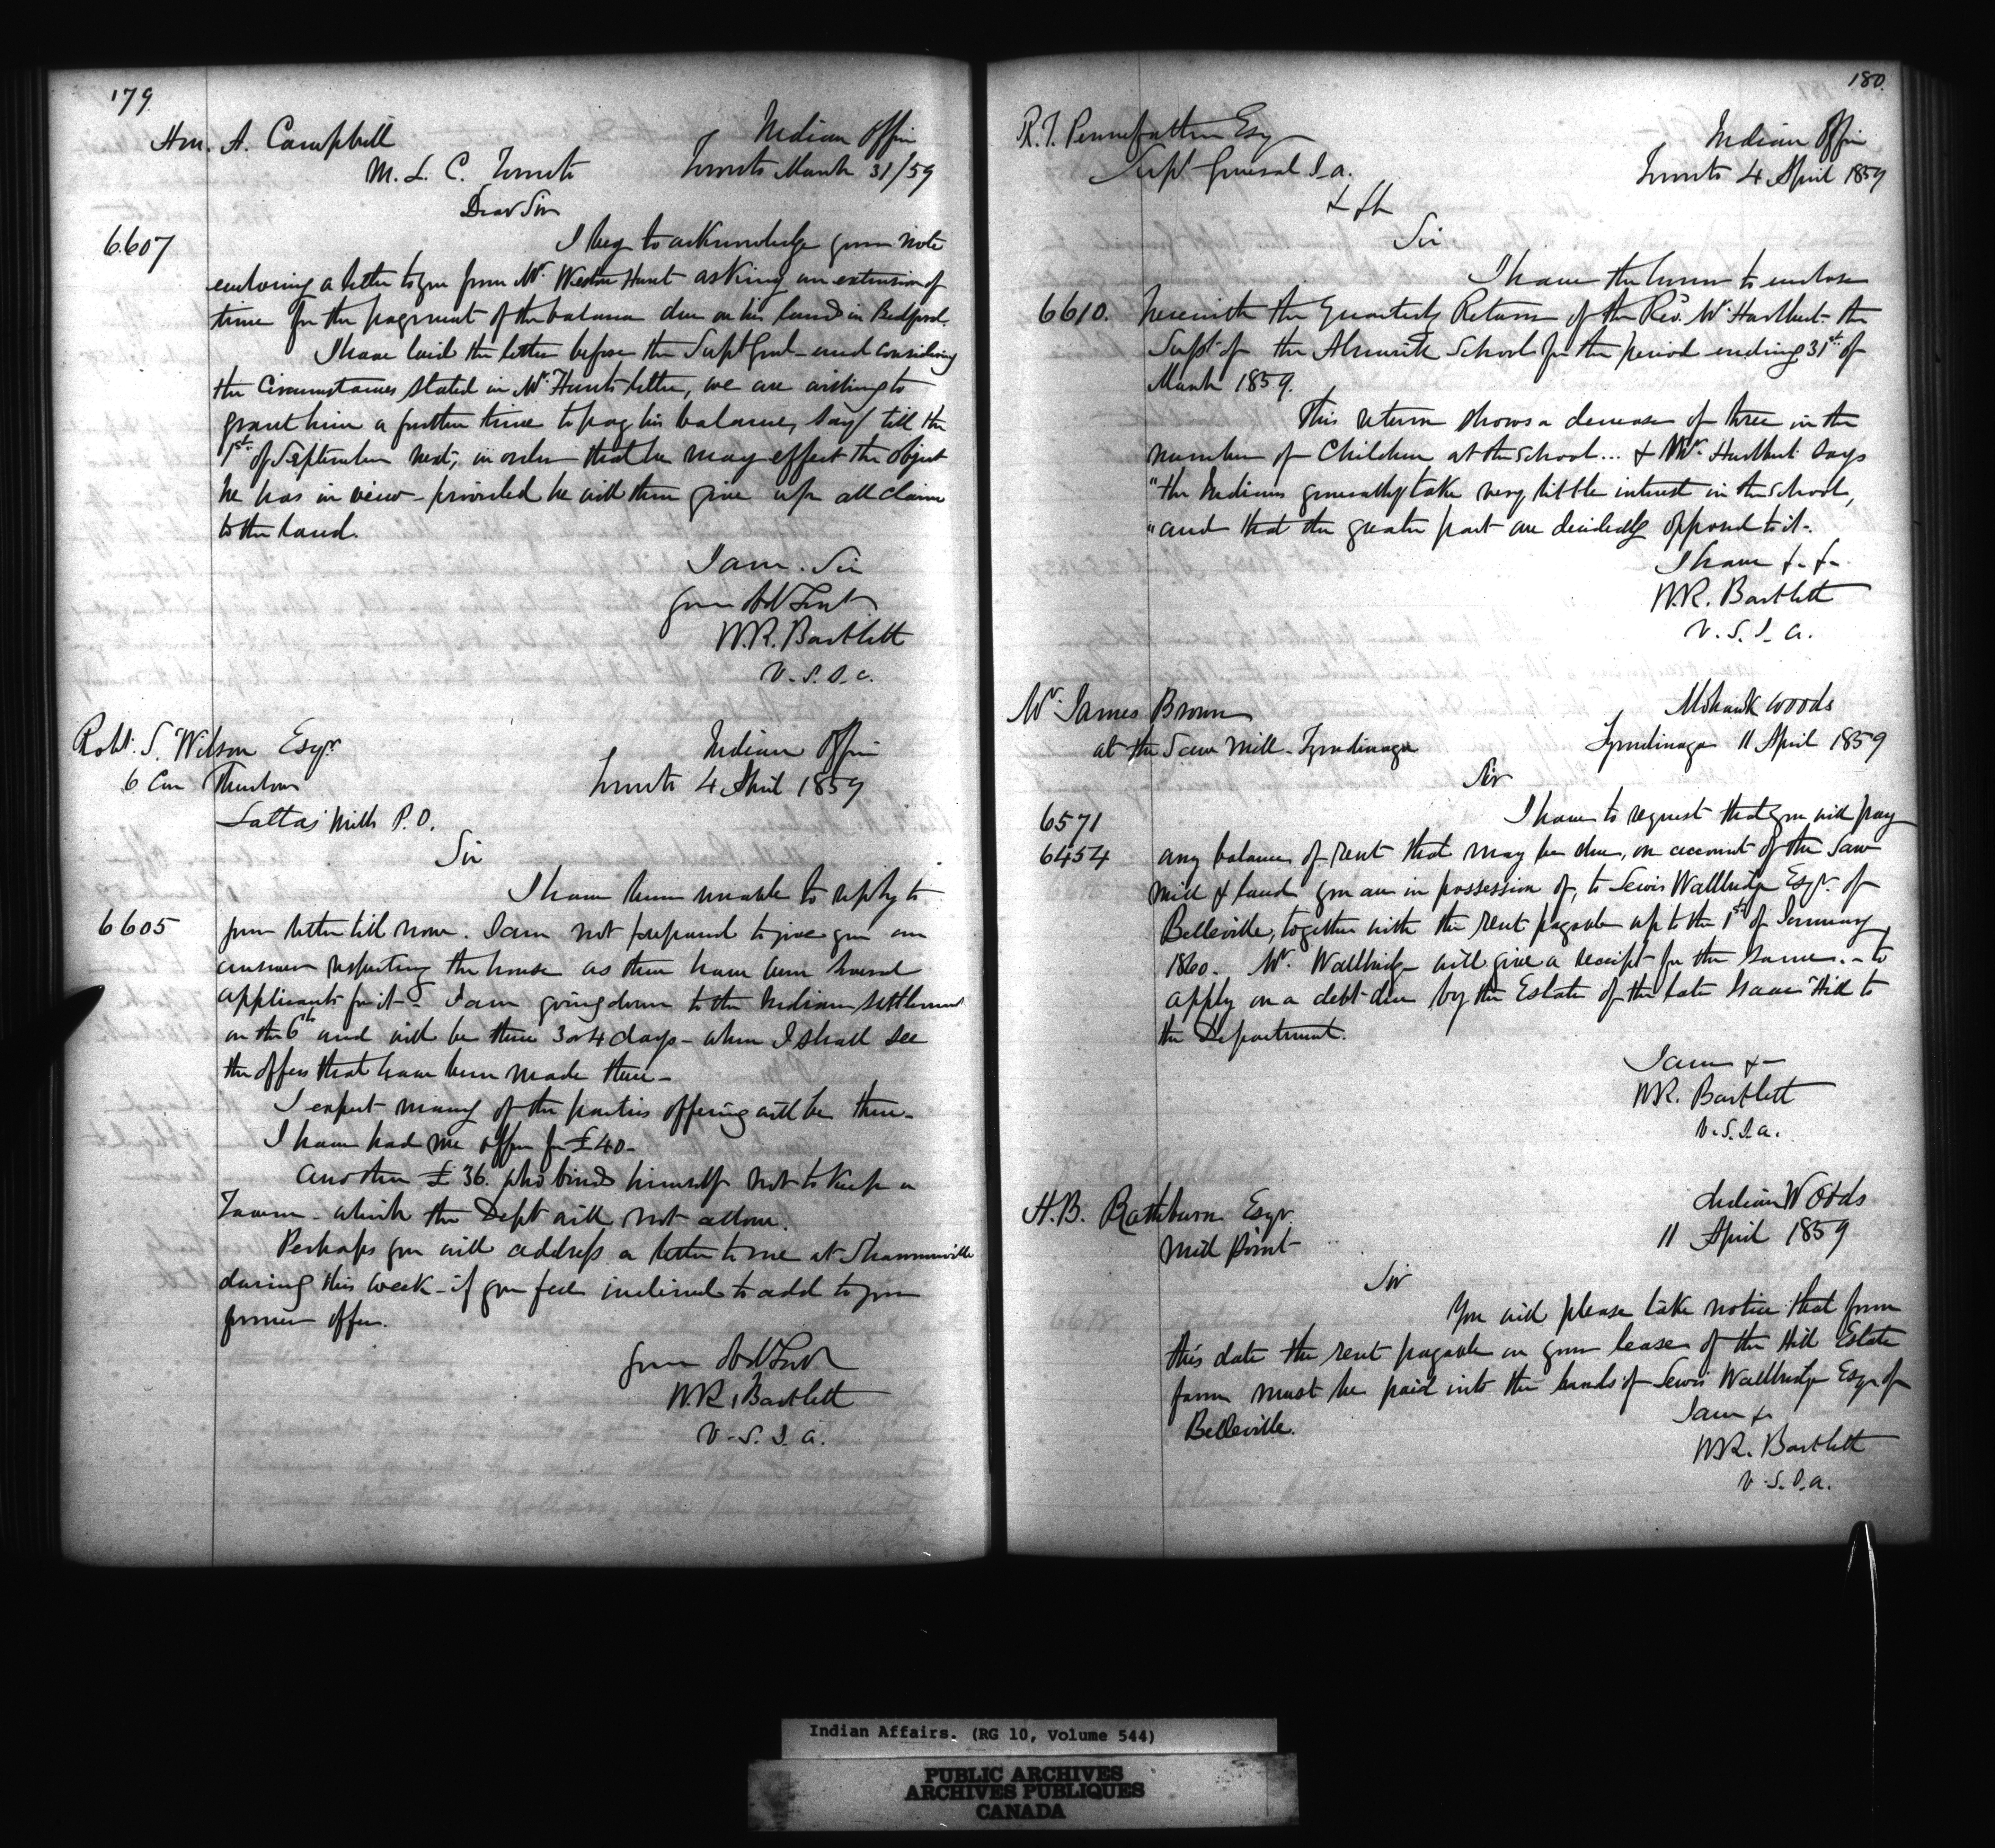 179
Hon. A. Campbell
M. L. C. Toronto
Indian Office
Toronto March 31/59
Dear Sir
6607
I beg to acknowledge your note
enclosing a letter to you from Mr. Weston Hunt asking an extension of
time for the payment of the balance due on his land in Bedford.
I have laid the letter before the Supt Genl - and considering
the Circumstances stated in Mr. Hunts letter, we are willing to
grant him a further time to pay his balance, say till the
1st of September next, in order that he may effect the object
he has in view - provided he will then give up all claim
to the land.
I am. Sir
Your Obt Servt
W.R. Bartlett
V. S. I. a.
Robt. S. Wilson Esqr.
6 Con Thurlow
Lattas Mills P.O.
Indian Office
Toronto 4 April 1859
Sir
6605
I have been unable to reply to
your letter till now. I am not prepared to give you an
answer respecting the house as there have been several
applicants for it - I am going down to the Indian settlement
on the 6th and will be there 3 or 4 days - when I shall see
the offers that have been made there -
I expect many of the parties offering will be there -
I have had one offer for £40 -
another £36. who binds himself not to keep a
Tavern - which the Dept will not allow.
Perhaps you will address a letter to me at Shannonville
during this week - if you feel inclined to add to your
former offer.
Your Obt Servt
W.R. Bartlett
V. S. I. a.
180.
R.T. Pennefather Esq
Supt General I. a.
& &c
Indian Office
Toronto 4 April 1859
Sir
6610.
I have the honor to enclose
herewith the Quarterly Return of the Rev. Mr Hurlburt - the
Supt of the Alnwick School for the period ending 31st of
March 1859.
This return shows a decrease of three in the
number of Children at the School... & Mr. Hurlburt says
"the Indians generally take very little interest in the School,
"and that the greater part are decidedly opposed to it -
I have &. &.
W.R. Bartlett
V. S. I. a.
Mr. James Brown
at the Saw Mill - Tyendinaga
Mohawk woods
Tyendinaga 11 April 1859
Sir
6571
6454
I have to request that you will pay
any balance of rent that may be due, on account of the Saw
mill & land you are in possession of, to Lewis Wallbridge Esqr. of
Belleville, together with the rent payable up to the 1st of January
1860 - Mr. Wallbridge will give a receipt for the same. - to
apply on a debt due by the Estate of the late Isaac Hill to
the Department.
I am &
W.R. Bartlett
V. S. I. a.
H.B. Rathburn Esqr.
Mill Point
Indian Woods
11 April 1859
Sir
You will please take notice that from
this date the rent payable on your lease of the Hill Estate
farm must be paid into the hands of Lewis Wallbridge Esqr of
Belleville.
I am &
W.R. Bartlett
V. S. I. a.
Indian Affairs. (RG 10, Volume 544)
PUBLIC ARCHIVES
ARCHIVES PUBLIQUES
CANADA